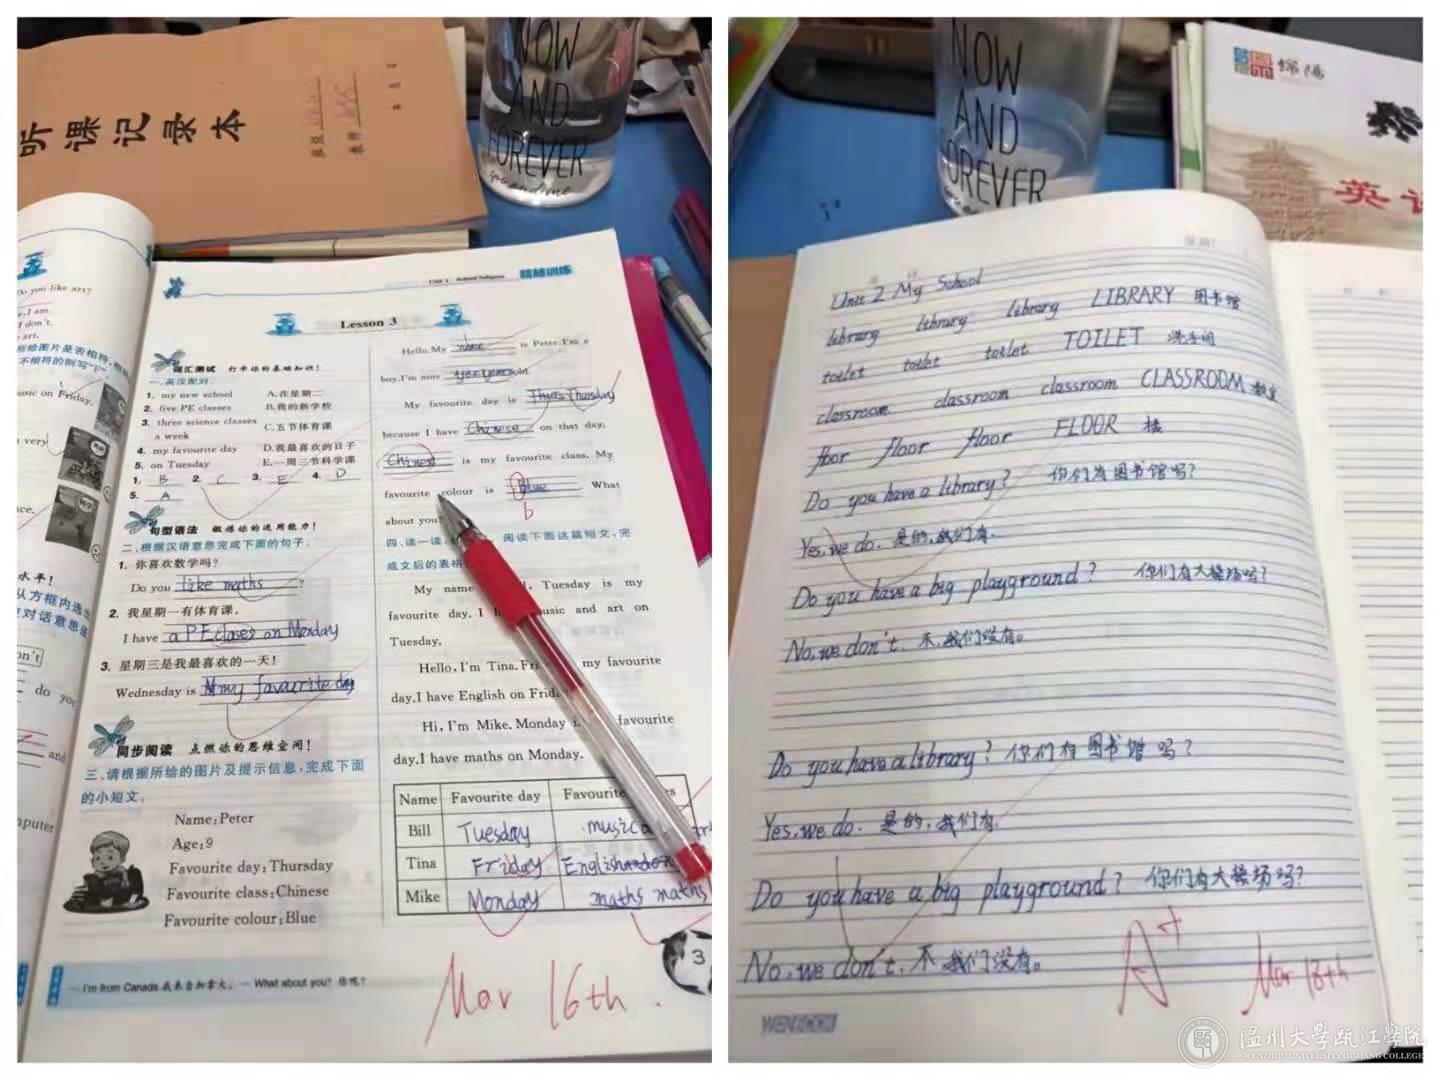 听课记录本
NOW
AND
FOREVER
you and me
Do you like art?
I am.
I don't.
art.
music on Friday.
very
水平！
don't
do you
and
computer
Unit 1 School Subjects 精越训练
Lesson 3
词汇测试 打牢你的基础知识！
一、英汉配对。
1. my new school A.在星期二
2. five PE classes B.我的新学校
3. three science classes a week C.五节体育课
4. my favourite day D.我最喜欢的日子
5. on Tuesday E.一周三节科学课
1. B 2. C 3. E 4. D
5. A
句型语法 锻炼你的运用能力！
二、根据汉语意思完成下面的句子。
1. 你喜欢数学吗？
Do you like maths ?
2. 我星期一有体育课。
I have a PE clases on Monday
3. 星期三是我最喜欢的一天！
Wednesday is my favaurite day
同步阅读 点燃你的思维空间！
三、请根据所给的图片及提示信息，完成下面
的小短文。
Name:Peter
Age:9
Favourite day:Thursday
Favourite class:Chinese
Favourite colour:Blue
Hello.My name is Peter.I'm a
boy.I'm nine old.
My favourite day is Thursday
because I have Chinese on that day.
Chinese is my favourite class. My
favourite colour is Blue What
b
about you?
四、读一读， 阅读下面这篇短文，完
成文后的表格
My name Tuesday is my
favourite day. I music and art on
Tuesday.
Hello, I'm Tina. my favourite
day.I have English on
Hi, I'm Mike. Monday favourite
day.I have maths on Monday.
Name Favourite day Favourite
Bill Tuesday music
Tina Friday English
Mike Monday maths maths
3
— I'm from Canada.我来自加拿大。 — What about you? 你呢？
Mar 16th
NOW
AND
FOREVER
绵阳
英语
Unit 2 My School
library library library LIBRARY 图书馆
toilet toilet toilet TOILET 洗手间
classroom classroom classroom CLASSROOM 教室
floor floor floor FLOOR 楼
Do you have a library? 你们有图书馆吗？
Yes, we do. 是的，我们有.
Do you have a big playground? 你们有大操场吗？
No, we don't. 不，我们没有。
Do you have a library? 你们有图书馆吗？
Yes, we do. 是的，我们有.
Do you have a big playground? 你们有大操场吗？
No, we don't. 不，我们没有。
A+ Mar 18th
温州大学瓯江学院
WENZHOU UNIVERSITY OUJIANG COLLEGE